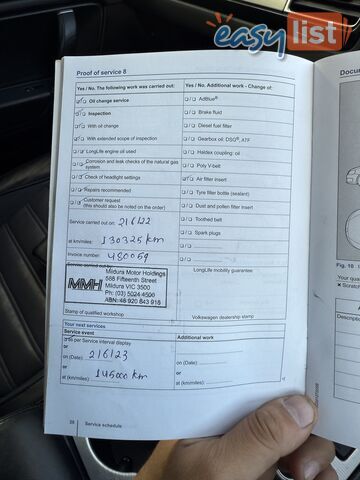 easylist
Proof of service 8
Yes / No. The following work was carried out:
Yes / No. Additional work - Change of:
Oil change service
AdBlue®
Inspection
Brake fluid
With oil change
Diesel fuel filter
With extended scope of inspection
Gearbox oil: DSG®, ATF
LongLife engine oil used
Haldex coupling: oil
Corrosion and leak checks of the natural gas system
Poly V-belt
Check of headlight settings
Air filter insert
Repairs recommended
Tyre filler bottle (sealant)
Customer request
(this should also be noted on the order)
Dust and pollen filter insert
Service carried out on: 216122
Toothed belt
at km/miles: 130325 km
Spark plugs
Invoice number: 480059
Service carried out by:
LongLife mobility guarantee:
MMH
Mildura Motor Holdings
588 Fifteenth Street
Mildura VIC 3500
Ph: (03) 5024 4500
ABN: 48 920 843 918
Stamp of qualified workshop
Volkswagen dealership stamp
Your next services
Service event
Additional work
as per Service interval display
or
on (Date): 216123
on (Date):
or
or
at (km/miles): 145000 km
at (km/miles):
28 Service schedule
Docum
Fig. 10
Your qua
× Scratch
Descriptio